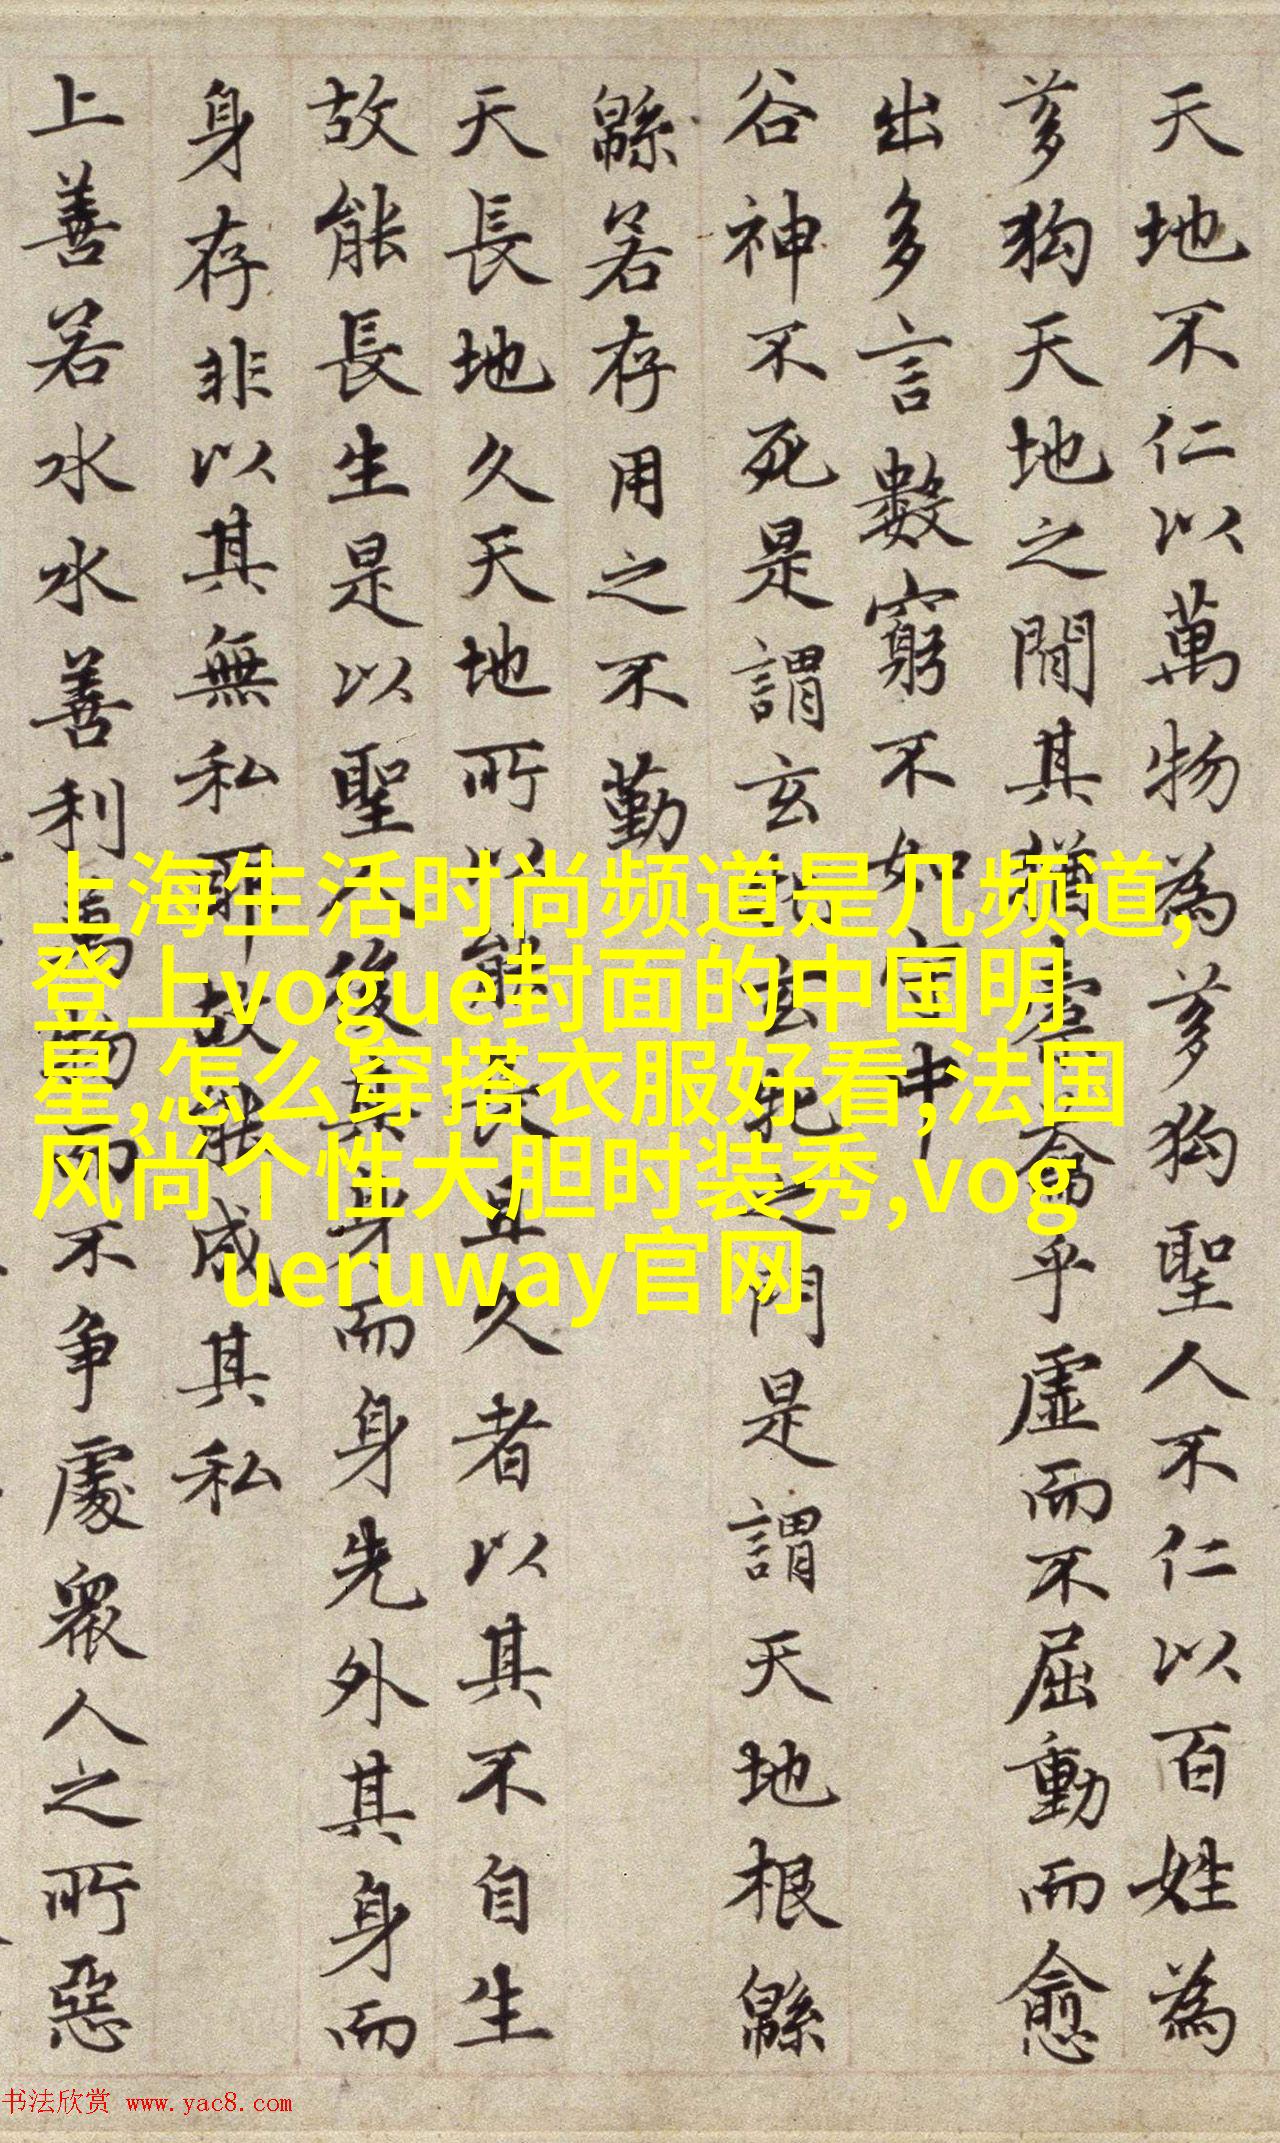 天地不仁以萬物為芻狗聖人不仁以百姓為
芻狗天地之間其猶橐籥乎虛而不屈動而愈
出多言數窮不如守中
谷神不死是謂玄牝玄牝之門是謂天地根緜
緜若存用之不勤
天長地久天地所以能長且久者以其不自生
故能長生是以聖人後其身而身先外其身而
身存非以其無私耶故能成其私
上善若水水善利萬物而不爭處衆人之所惡
上海生活时尚频道是几频道,
登上vogue封面的中国明
星,怎么穿搭衣服好看,法国
风尚个性大胆时装秀,vog
ueruway官网
书法欣赏 www.yac8.com